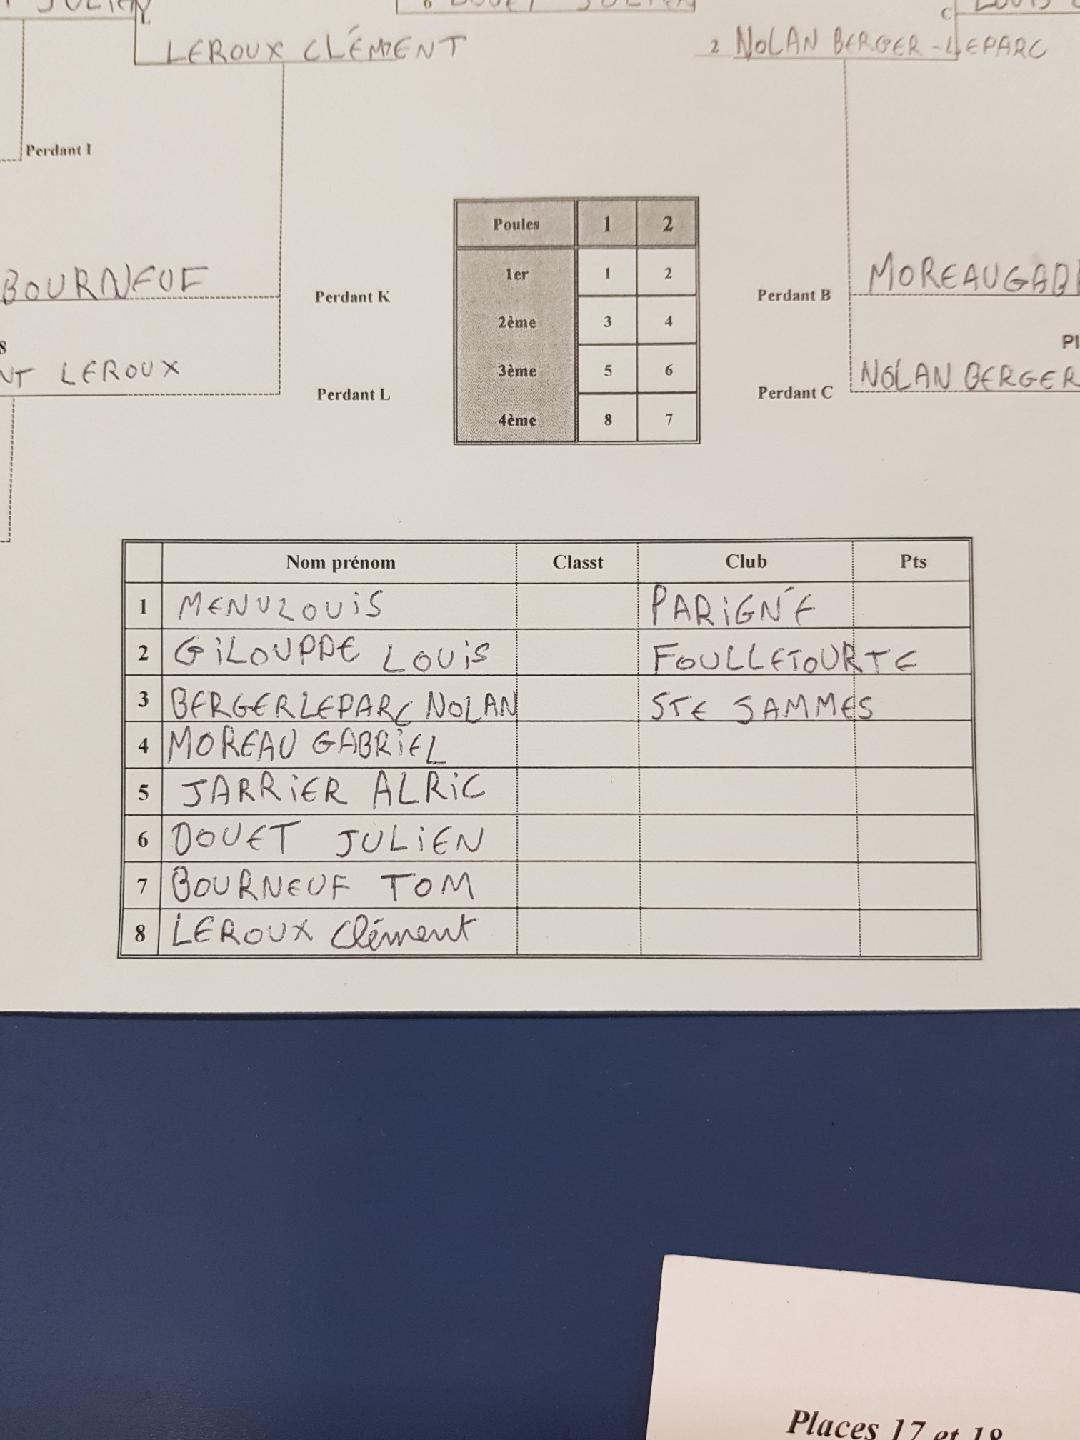 JULIEN
C
LEROUX CLÉMENT
2 NOLAN BERGER-LEPARC
Perdant I
Poules 1 2
1er 1 2
2ème 3 4
3ème 5 6
4ème 8 7
BOURNEUF
Perdant K
Perdant B
MOREAU GAB
8
NT LEROUX
Perdant L
Perdant C
Pl
NOLAN BERGER
Nom prénom Classt Club Pts
1 MENU LOUIS PARIGNÉ
2 GILOUPPE LOUIS FOULLETOURTE
3 BERGER LEPARC NOLAN STE JAMMES
4 MOREAU GABRIEL
5 JARRIER ALRIC
6 DOUET JULIEN
7 BOURNEUF TOM
8 LEROUX Clément
Places 17 et 18